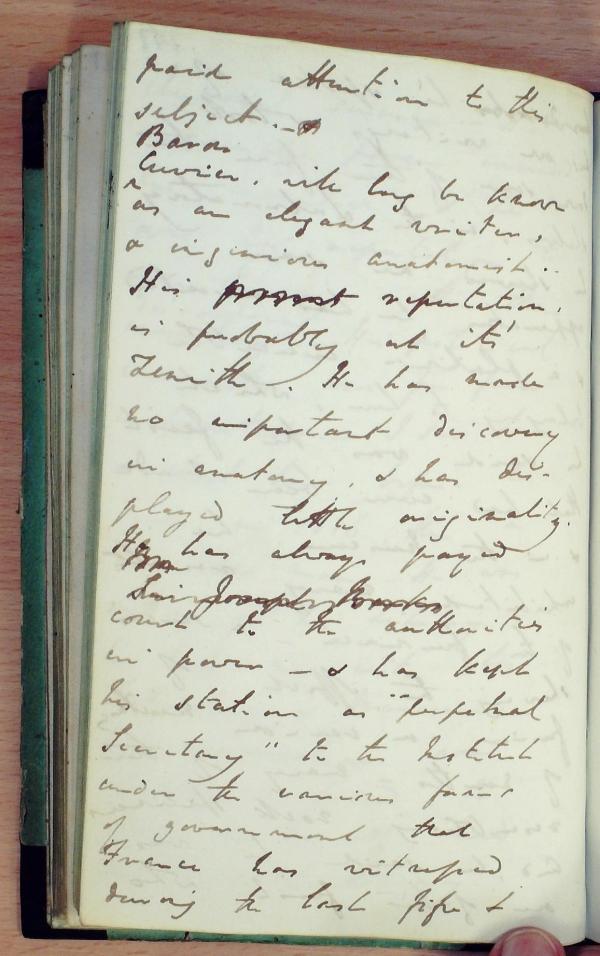 paid attention to this
subject. –
Baron
Cuvier, will long be known
as an elegant writer,
a ingenious anatomist..
His reputation,
is probably at its
Zenith. He has made
no important discovery
in anatomy, & has dis-
played little originality.
He has always payed
Sir Joseph Banks
court to the authorities
in power – & has kept
his station as "perpetual
Secretary" to the Institute
under the various forms
of government that
France has witnessed
during the last fifte &